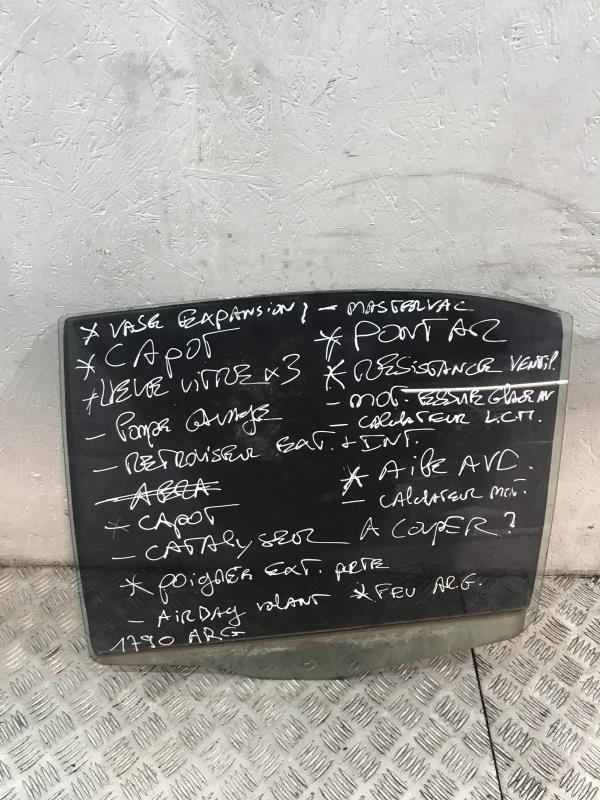 * VASE EXPANSION ?
* CAPOT
* LEVE VITRE x3
- POMPE LAVAGE
- RETROVISEUR EXT. + INT.
- ABCA
* CAPOT
- CATALYSEUR A COUPER ?
* POIGNER EXT. PORTE
- AIRBAG VOLANT
1790 ARG
- MASTERVAC
* PONT AR
* RESISTANCE VENTIL.
- MOT. ESSUIE GLACE AV
- CALCULATEUR L.C.M.
* AILE AVD.
- CALCULATEUR MOT.
* FEU ARG.